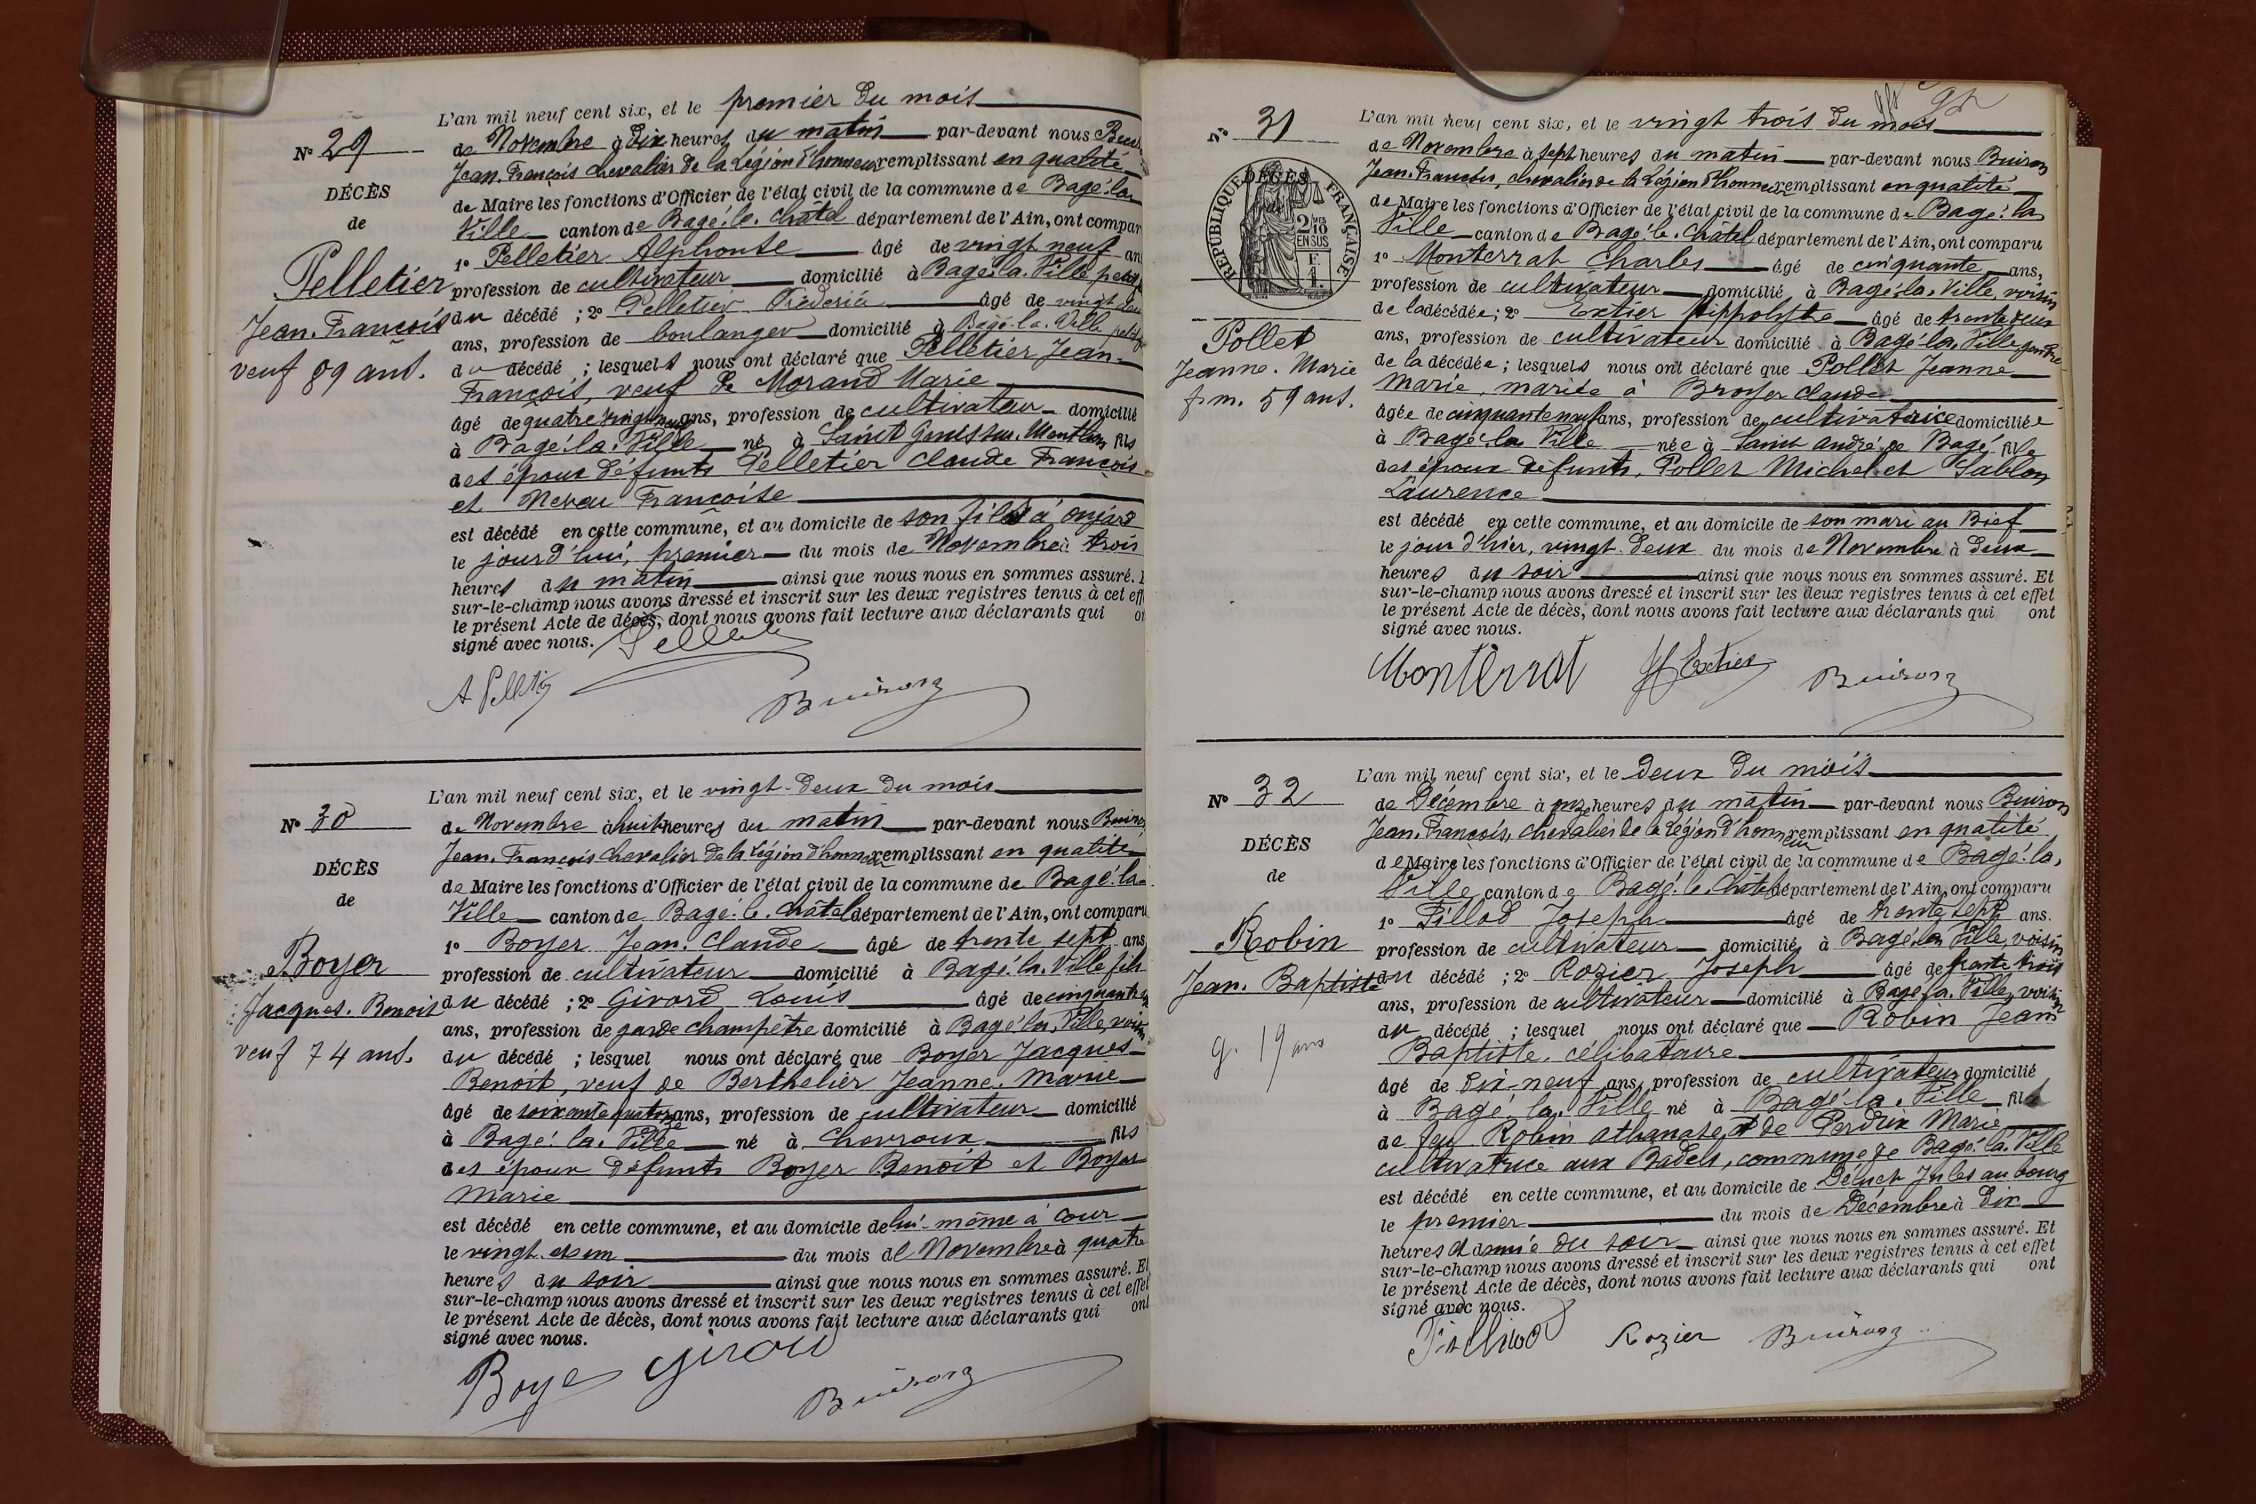 L'an mil neuf cent six, et le premier du mois
de Novembre à dix heures du matin par-devant nous
Nº 29
Jean. François chevalier de la Légion d'honneur remplissant en qualité
DÉCÈS
de Maire les fonctions d'Officier de l'état civil de la commune de Bagé-la-
de
Ville canton de Bagé-le-Châtel département de l'Ain, ont compar
1º Pelletier Alphonse âgé de vingt neuf an
Pelletier
profession de cultivateur domicilié à Bagé-la-Ville petit
Jean. François
du décédé ; 2º Pelletier Frédéric âgé de vingt
ans, profession de boulanger domicilié à Bagé-la-Ville petit
veuf 89 ans.
du décédé ; lesquels nous ont déclaré que Pelletier Jean-
François, veuf de Morand Marie
âgé de quatre vingt neuf ans, profession de cultivateur domicilié
à Bagé-la-Ville né à Saint Genis sur Menthon fils
des époux défunts Pelletier Claude François
et Neveu Françoise
est décédé en cette commune, et au domicile de son fils à
le jourd'hui, premier du mois de Novembre à trois
heures du matin ainsi que nous nous en sommes assuré.
sur-le-champ nous avons dressé et inscrit sur les deux registres tenus à cet eff
le présent Acte de décès, dont nous avons fait lecture aux déclarants qui on
signé avec nous.
A Pelletier
Buiron
L'an mil neuf cent six, et le vingt-deux du mois
Nº 30
de Novembre à huit heures du matin par-devant nous Buiron
Jean. François chevalier de la Légion d'honneur remplissant en qualité
DÉCÈS
de Maire les fonctions d'Officier de l'état civil de la commune de Bagé-la-
de
Ville canton de Bagé-le-Châtel département de l'Ain, ont comparu
1º Boyer Jean. Claude âgé de trente sept ans
Boyer
profession de cultivateur domicilié à Bagé-la-Ville fils
Jacques. Benoit
du décédé ; 2º Girard Louis âgé de cinquante
ans, profession de garde champêtre domicilié à Bagé-la-Ville voisin
veuf 74 ans.
du décédé ; lesquel nous ont déclaré que Boyer Jacques-
Benoit, veuf de Berthelier Jeanne. Marie
âgé de soixante quatorze ans, profession de cultivateur domicilié
à Bagé-la-Ville né à Chevroux fils
des époux défunts Boyer Benoit et Boyer
Marie
est décédé en cette commune, et au domicile de lui-même à Cour
le vingt et un du mois de Novembre à quatre
heures du soir ainsi que nous nous en sommes assuré. Et
sur-le-champ nous avons dressé et inscrit sur les deux registres tenus à cet effet
le présent Acte de décès, dont nous avons fait lecture aux déclarants qui ont
signé avec nous.
Boyer Girard
Buiron
L'an mil neuf cent six, et le vingt trois du mois
Nº 31
de Novembre à sept heures du matin par-devant nous Buiron
Jean. François, chevalier de la Légion d'honneur remplissant en qualité
RÉPUBLIQUE FRANÇAISE
DÉCÈS
de
2/10 EN SUS
F. 1.
de Maire les fonctions d'Officier de l'état civil de la commune de Bagé-la
Ville canton de Bagé-le-Châtel département de l'Ain, ont comparu
1º Monterrat Charles âgé de cinquante ans,
profession de cultivateur domicilié à Bagé-la-Ville, voisin
de la décédée ; 2º Extier Hippolyte âgé de trente deux
Pollet
ans, profession de cultivateur domicilié à Bagé-la-Ville gendre
Jeanne. Marie
de la décédée ; lesquels nous ont déclaré que Pollet Jeanne
f. m. 59 ans.
Marie, mariée à Broyer Claude
âgée de cinquante neuf ans, profession de cultivatrice domiciliée
à Bagé-la-Ville née à Saint André de Bagé fille
des époux défunts, Pollet Michel et Sablon
Laurence
est décédé en cette commune, et au domicile de son mari au Bief
le jour d'hier, vingt-deux du mois de Novembre à deux
heures du soir ainsi que nous nous en sommes assuré. Et
sur-le-champ nous avons dressé et inscrit sur les deux registres tenus à cet effet
le présent Acte de décès, dont nous avons fait lecture aux déclarants qui ont
signé avec nous.
Monterrat H Extier Buiron
L'an mil neuf cent six, et le deux du mois
Nº 32
de Décembre à onze heures du matin par-devant nous Buiron
Jean. François, chevalier de la Légion d'honneur remplissant en qualité
DÉCÈS
de Maire les fonctions d'Officier de l'état civil de la commune de Bagé-la,
de
Ville canton de Bagé-le-Châtel département de l'Ain, ont comparu
1º Pillod Joseph âgé de trente sept ans.
Robin
profession de cultivateur domicilié à Bagé-la-Ville, voisin
Jean. Baptiste
du décédé ; 2º Rozier Joseph âgé de trente trois
ans, profession de cultivateur domicilié à Bagé-la-Ville, voisin
g. 19 ans
du décédé ; lesquel nous ont déclaré que Robin Jean
Baptiste, célibataire
âgé de dix-neuf ans, profession de cultivateur domicilié
à Bagé-la-Ville né à Bagé-la-Ville fils
de feu Robin Athanase et de Perdrix Marie
cultivatrice aux Badels, commune de Bagé-la-Ville
est décédé en cette commune, et au domicile de Jules au bourg
le premier du mois de Décembre à dix
heures et demie du soir ainsi que nous nous en sommes assuré. Et
sur-le-champ nous avons dressé et inscrit sur les deux registres tenus à cet effet
le présent Acte de décès, dont nous avons fait lecture aux déclarants qui ont
signé avec nous.
Rozier Buiron